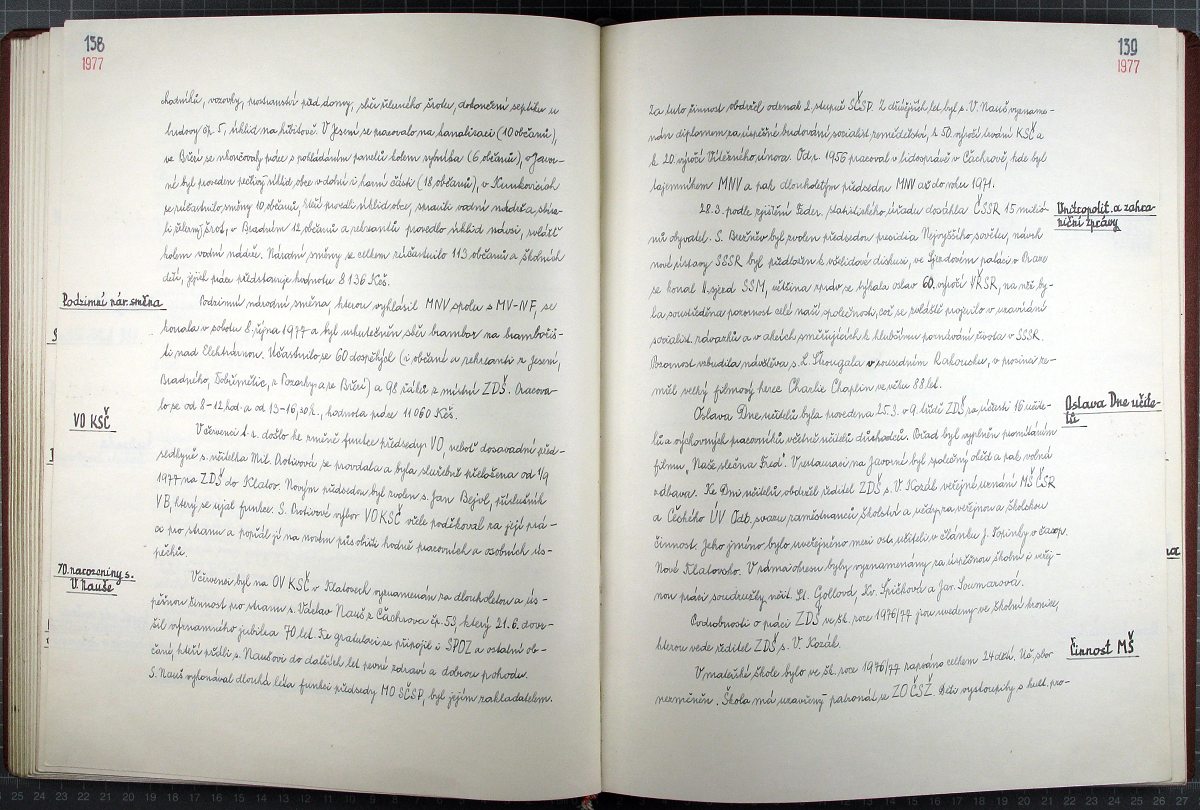 138
1977
chodníků, vozovky, prostranství před domy, sběr železného šrotu, dokončení septiku u
budovy čp. 5, úklid na hřbitově. V Jesení se pracovalo na kanalizaci (10 občanů),
ve Březí se ukončovaly práce s pokládáním panelů kolem rybníka (6 občanů), v Javor-
né byl proveden pečlivý úklid obce v dolní i horní části (18 občanů), v Kunkovicích
se zúčastnilo směny 10 občanů, kteří provedli úklid obce, spravili vodní nádrž a sbíra-
li železný šrot, v Bradném 12 občanů a rekreantů provedlo úklid návsi, zvláště
kolem vodní nádrže. Národní směny se celkem zúčastnilo 113 občanů a školních
dětí, jejich práce představuje hodnotu 8 136 Kčs.
Podzimní nár. směna
Podzimní národní směna, kterou vyhlásil MNV spolu s MV-NF, se
konala v sobotu 8. října 1977 a byl uskutečněn sběr brambor na bramboriš-
ti nad Elektrárnou. Účastnilo se 60 dospělých (i občané a rekreanti z Jesení,
Bradného, Dobřemilic, z Pozorky a ze Březí) a 98 žáků z místní ZDŠ. Pracova-
lo se od 8-12 hod. a od 13-16,30 h., hodnota práce 11 060 Kčs.
VO KSČ
V červenci t. r. došlo ke změně funkce předsedy VO, neboť dosavadní před-
sedkyně s. učitelka Mil. Protivová se provdala a byla služebně přeložena od 1/9
1977 na ZDŠ do Klatov. Novým předsedou byl zvolen s. Jan Bejvl, příslušník
VB, který se ujal funkce. S. Protivové výbor VO KSČ vřele poděkoval za její prá-
ci pro stranu a popřál jí na novém působišti hodně pracovních a osobních ús-
pěchů.
70. narozeniny s.
V. Nauše
V červenci byl na OV KSČ v Klatovech vyznamenán za dlouholetou a ús-
pěšnou činnost pro stranu s. Václav Nauš z Čachrova čp. 53, který 21. 6. dovr-
šil významného jubilea 70 let. Ke gratulaci se připojil i SPOZ a ostatní ob-
čané, kteří přáli s. Naušovi do dalších let pevné zdraví a dobrou pohodu.
S. Nauš vykonával dlouhá léta funkci předsedy MO SČSP, byl jejím zakladatelem.
139
1977
Za tuto činnost obdržel odznak 2. stupně SČSP. Z dřívějších let byl s. V. Nauš vyzname-
nán diplomem za úspěšné budování socialist. zemědělství, k 50. výročí trvání KSČ a
k 20. výročí Vítězného února. Od r. 1956 pracoval v lidosprávě v Čachrově, kde byl
tajemníkem MNV a pak dlouholetým předsedou MNV až do roku 1971.
Vnitropolit. a zahra-
niční zprávy
28. 3. podle zjištění Feder. statistického úřadu dosáhla ČSSR 15 milió-
nů obyvatel. S. Brežněv byl zvolen předsedou presidia Nejvyššího sovětu, návrh
nové ústavy SSSR byl předložen k všelidové diskusi, ve Sjezdovém paláci v Praze
se konal II. sjezd SSM, většina zpráv se týkala oslav 60. výročí VŘSR, na něž by-
la soustředěna pozornost celé naší společnosti, což se zvláště projevilo v uzavírání
socialist. závazků a v akcích směřujících k hlubšímu poznávání života v SSSR.
Pozornost vzbudila návštěva s. L. Štrougala v sousedním Rakousku, v prosinci ze-
mřel velký filmový herec Charlie Chaplin ve věku 88 let.
Oslava Dne učite-
lů
Oslava Dne učitelů byla provedena 25. 3. v 9. třídě ZDŠ za účasti 16 učite-
lů a výchovných pracovníků včetně učitelů důchodců. Pořad byl vyplněn promítáním
filmu „Naše slečna Fred". V restauraci na Javorné byl společný oběd a pak volná
zábava. Ke Dni učitelů obdržel ředitel ZDŠ s. V. Kozák veřejné uznání MŠ ČSR
a Českého ÚV Odb. svazu zaměstnanců školství a vědy za veřejnou a školskou
činnost. Jeho jméno bylo uveřejněno mezi ost. učiteli v článku J. Topinky v časop.
Nové Klatovsko. V rámci okrsku byly vyznamenány za úspěšnou školní i veřej-
nou práci soudružky učit. Gollová, Kv. Špičková a Jar. Soumarová.
Podrobnosti o práci ZDŠ ve šk. roce 1976/77 jsou uvedeny ve školní kronice,
kterou vede ředitel ZDŠ s. V. Kozák.
Činnost MŠ
V mateřské škole bylo ve šk. roce 1976/77 zapsáno celkem 24 dětí. Uč. sbor
nezměněn. Škola má uzavřený patronát se ZO ČSŽ. Děti vystoupily s kult. pro-